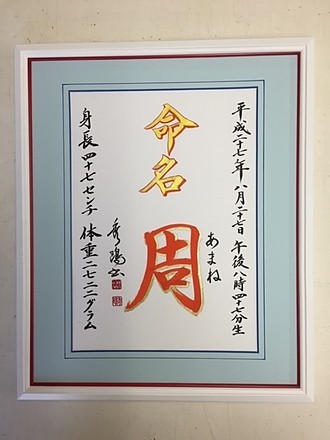 平成二十七年八月二十七日午後八時四十七分生
命名
あまね
周
身長四十七センチ 体重二七二二グラム